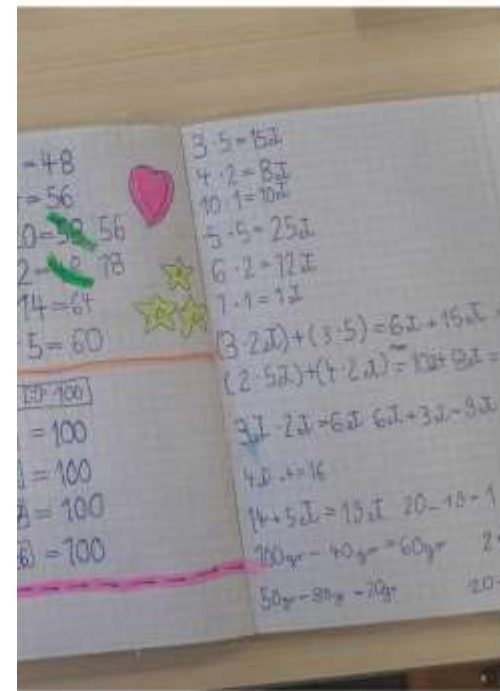 =48
=56
0=58 56
2= 18
14=64
5=60
100
=100
=100
=100
=100
3·5=15zł
4·2=8zł
10·1=10zł
5·5=25zł
6·2=12zł
1·1=1zł
(3·2zł)+(3·5)=6zł+15zł
(2·5zł)+(4·2zł)=10zł+8zł=
3zł·2zł=6zł 6zł+3zł=9zł
=16
14+5zł=19zł 20-19=1
100gr-40gr=60gr 2
50gr-30gr=20gr 20